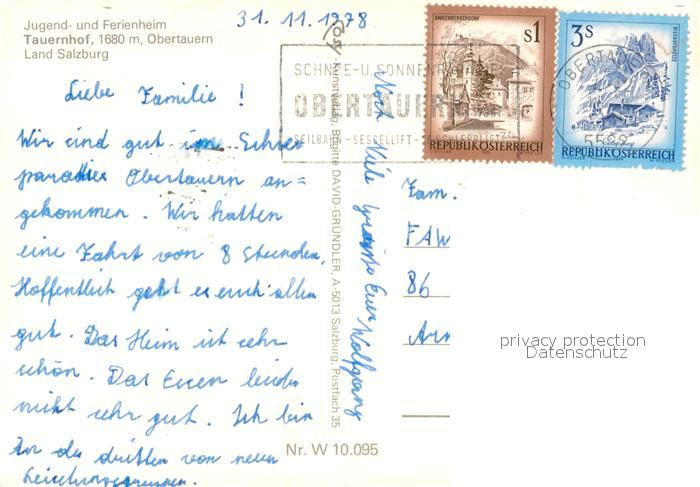 Jugend- und Ferienheim
Tauernhof, 1680 m, Obertauern
Land Salzburg
31. 11. 1978
Liebe Familie!
Wir sind gut im Schnee
paradies Obertauern an=
gekommen. Wir hatten
eine Fahrt von 8 Stunden.
Hoffentlich geht es euch allen
gut. Das Heim ist sehr
schön. Das Essen leider
nicht sehr gut. Ich bin
in der dritten von neun
Leistungsgruppen.
Noch Viele Grüsse Euer Wolfgang
Kunstverlag Brigitte DAVID-GRÜNDLER, A-5013 Salzburg, Postfach 35
Nr. W 10.095
SCHNEE-U. SONNEN
OBERTAUERN
SEILBAHN-SESSELLIFT-
KAHLENBERGERDORF
S1
REPUBLIK ÖSTERREICH
3S
REPUBLIK ÖSTERREICH
OBERTAUERN
5562
Fam.
FAW
86
privacy protection
Datenschutz